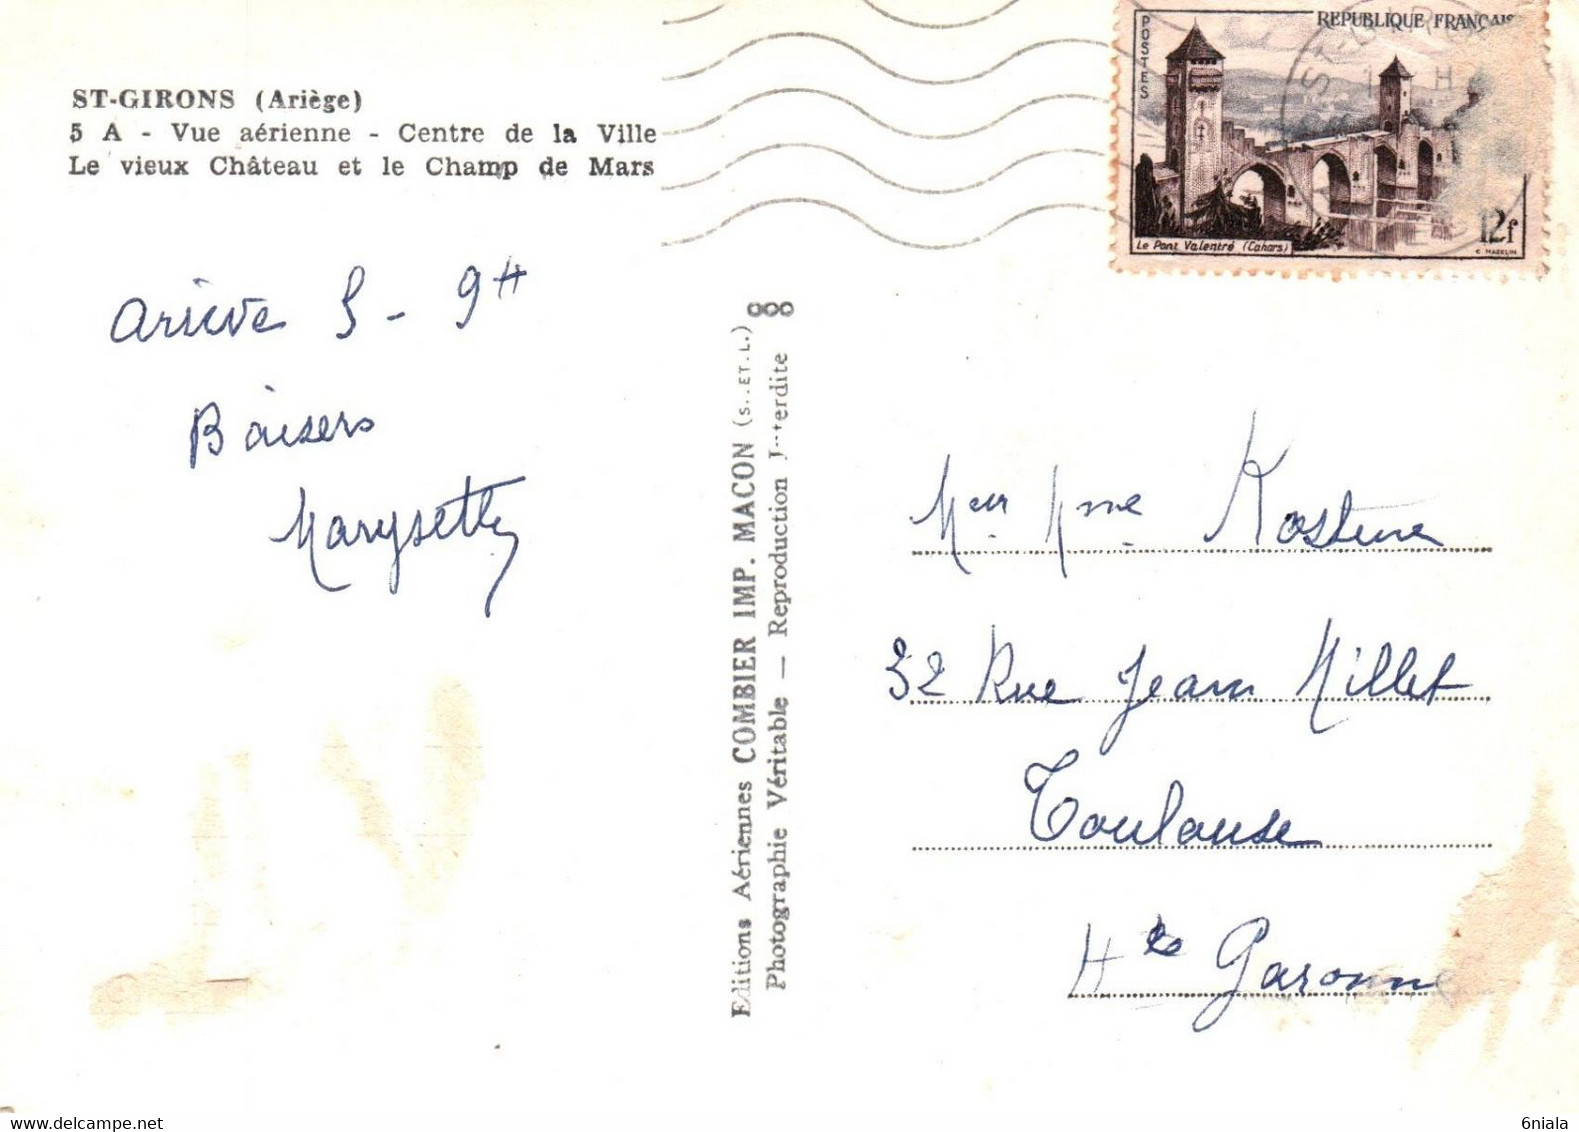 ST-GIRONS (Ariège)
5 A - Vue aérienne - Centre de la Ville
Le vieux Château et le Champ de Mars
POSTES
REPUBLIQUE FRANÇAIS
Le Pont Valentré (Cahors)
12f
C. MAZELIN
Arrive S - 9H
Baisers
Marysette
Editions Aériennes COMBIER IMP. MACON (S.-ET-L.)
Photographie Véritable — Reproduction Interdite
Mr Mme
32 Rue Jean Millet
Toulouse
Hte Garonne
6niala
delcampe.net